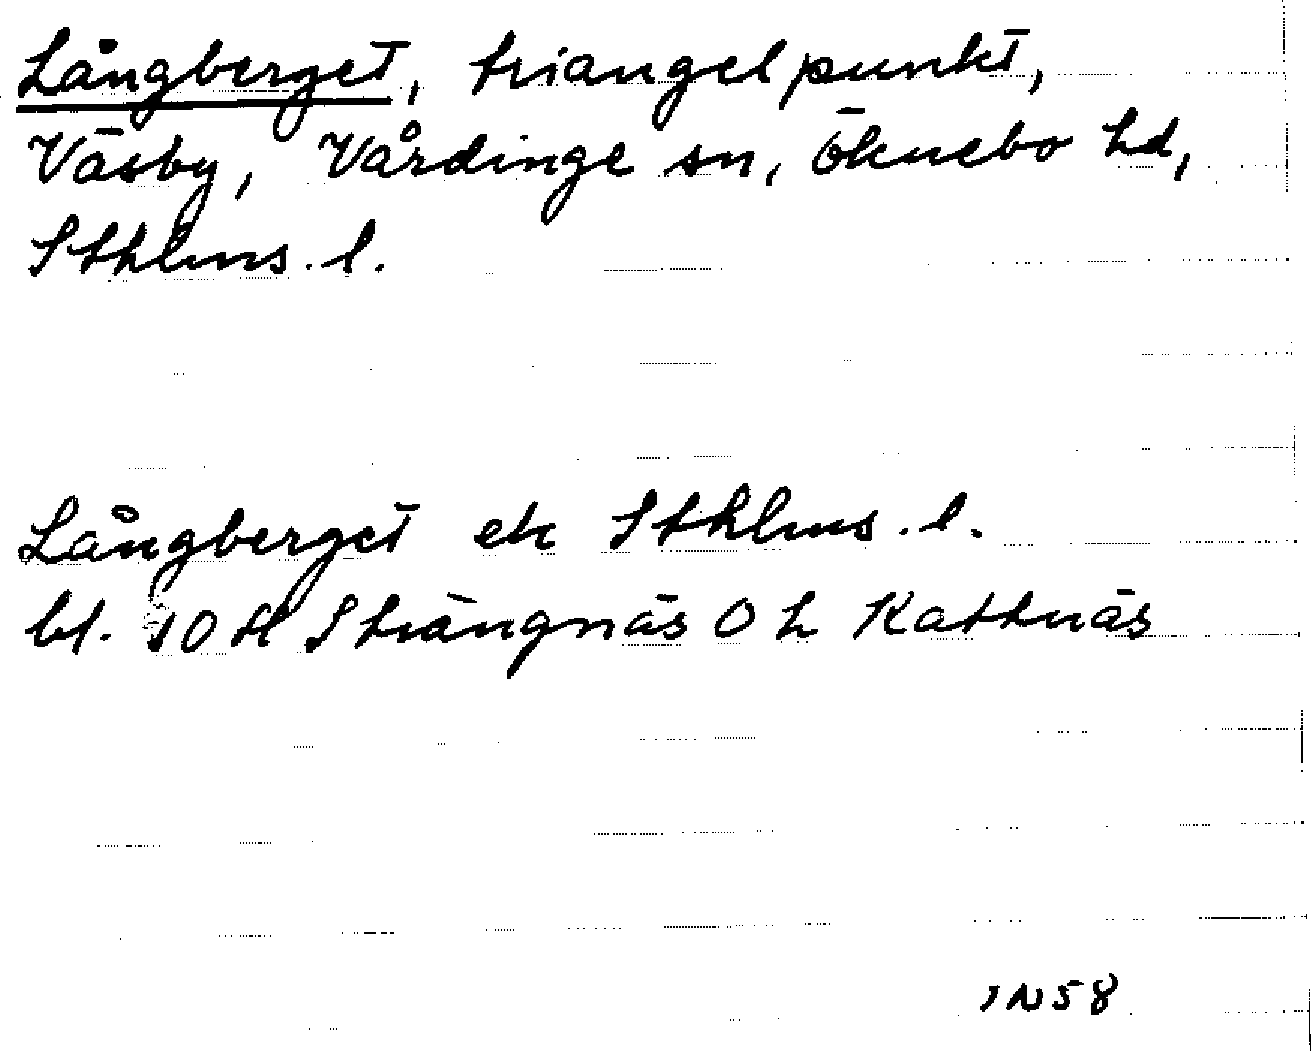 Långberget, triangelpunkt,
Väsby, Vårdinge sn, Öknebo hd,
Sthlms. l.
Långberget ek Sthlms. l.
bl. 10 H Strängnäs O h Kattnäs
IN58